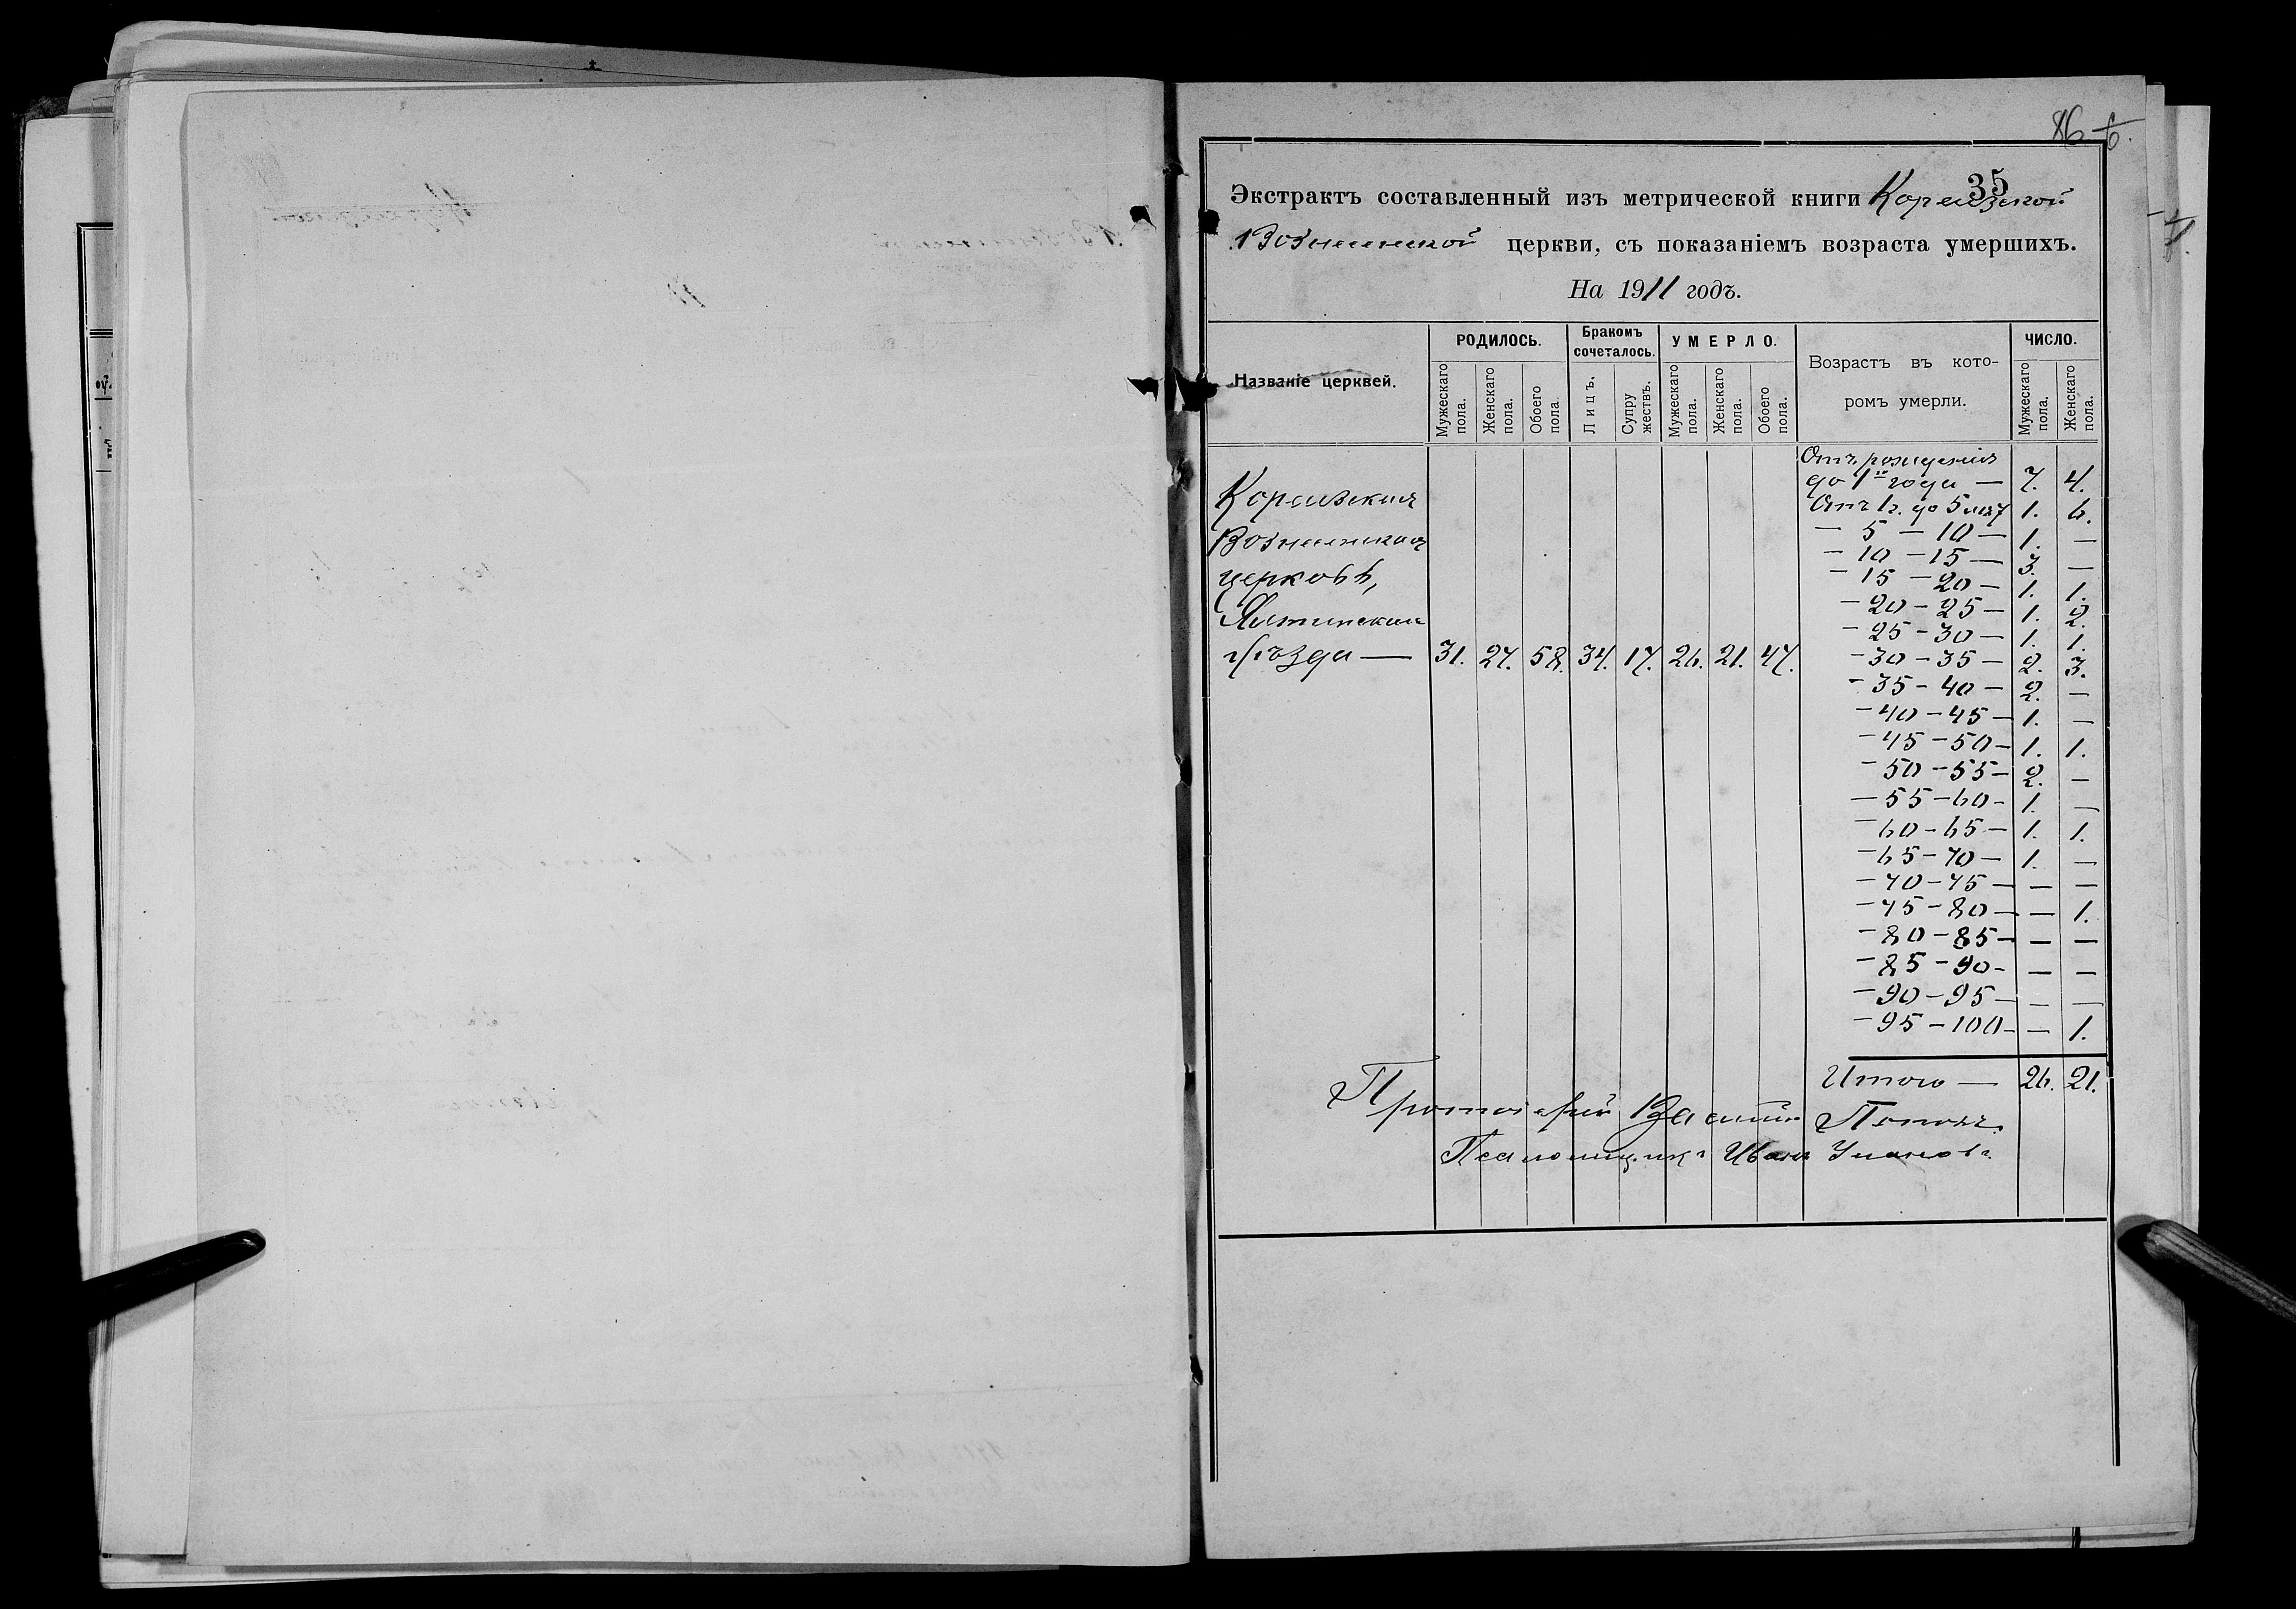 86
35
Экстрактъ составленный изъ метрической книги Кореизской
Вознесенской церкви, съ показаніемъ возраста умершихъ.
На 1911 годъ.
Названіе церквей.
РОДИЛОСЬ.
Мужескаго пола.
Женскаго пола.
Обоего пола
Бракомъ сочеталось.
Лицъ.
Супружествъ.
УМЕРЛО.
Мужескаго пола.
Женскаго пола.
Обоего пола.
Возрастъ въ которомъ умерли.
ЧИСЛО.
Мужескаго пола.
Женскаго пола.
Кореизская
Вознесенская
церковь,
Ялтинскаго
уѣзда — 31. 27. 58. 34. 17. 26. 21. 47.
Отъ рожденія
до 1го года — 7. 4.
Отъ 1 г. до 5 лѣт 1. 6.
— 5 — 10 — 1. —
— 10 — 15 — 3. —
— 15 — 20 — 1. 1.
— 20 — 25 — 1. 2.
— 25 — 30 — 1. 1.
— 30 — 35 — 2. 3.
— 35 — 40 — 2. —
— 40 — 45 — 1. —
— 45 — 50 — 1. 1.
— 50 — 55 — 2. —
— 55 — 60 — 1. —
— 60 — 65 — 1. 1.
— 65 — 70 — 1. —
— 70 — 75 — — —
— 75 — 80 — — 1.
— 80 — 85 — — —
— 85 — 90 — — —
— 90 — 95 — — —
— 95 — 100 — — 1.
Итого — 26. 21.
Протоіерей Василій Поповъ.
Псаломщикъ Иванъ